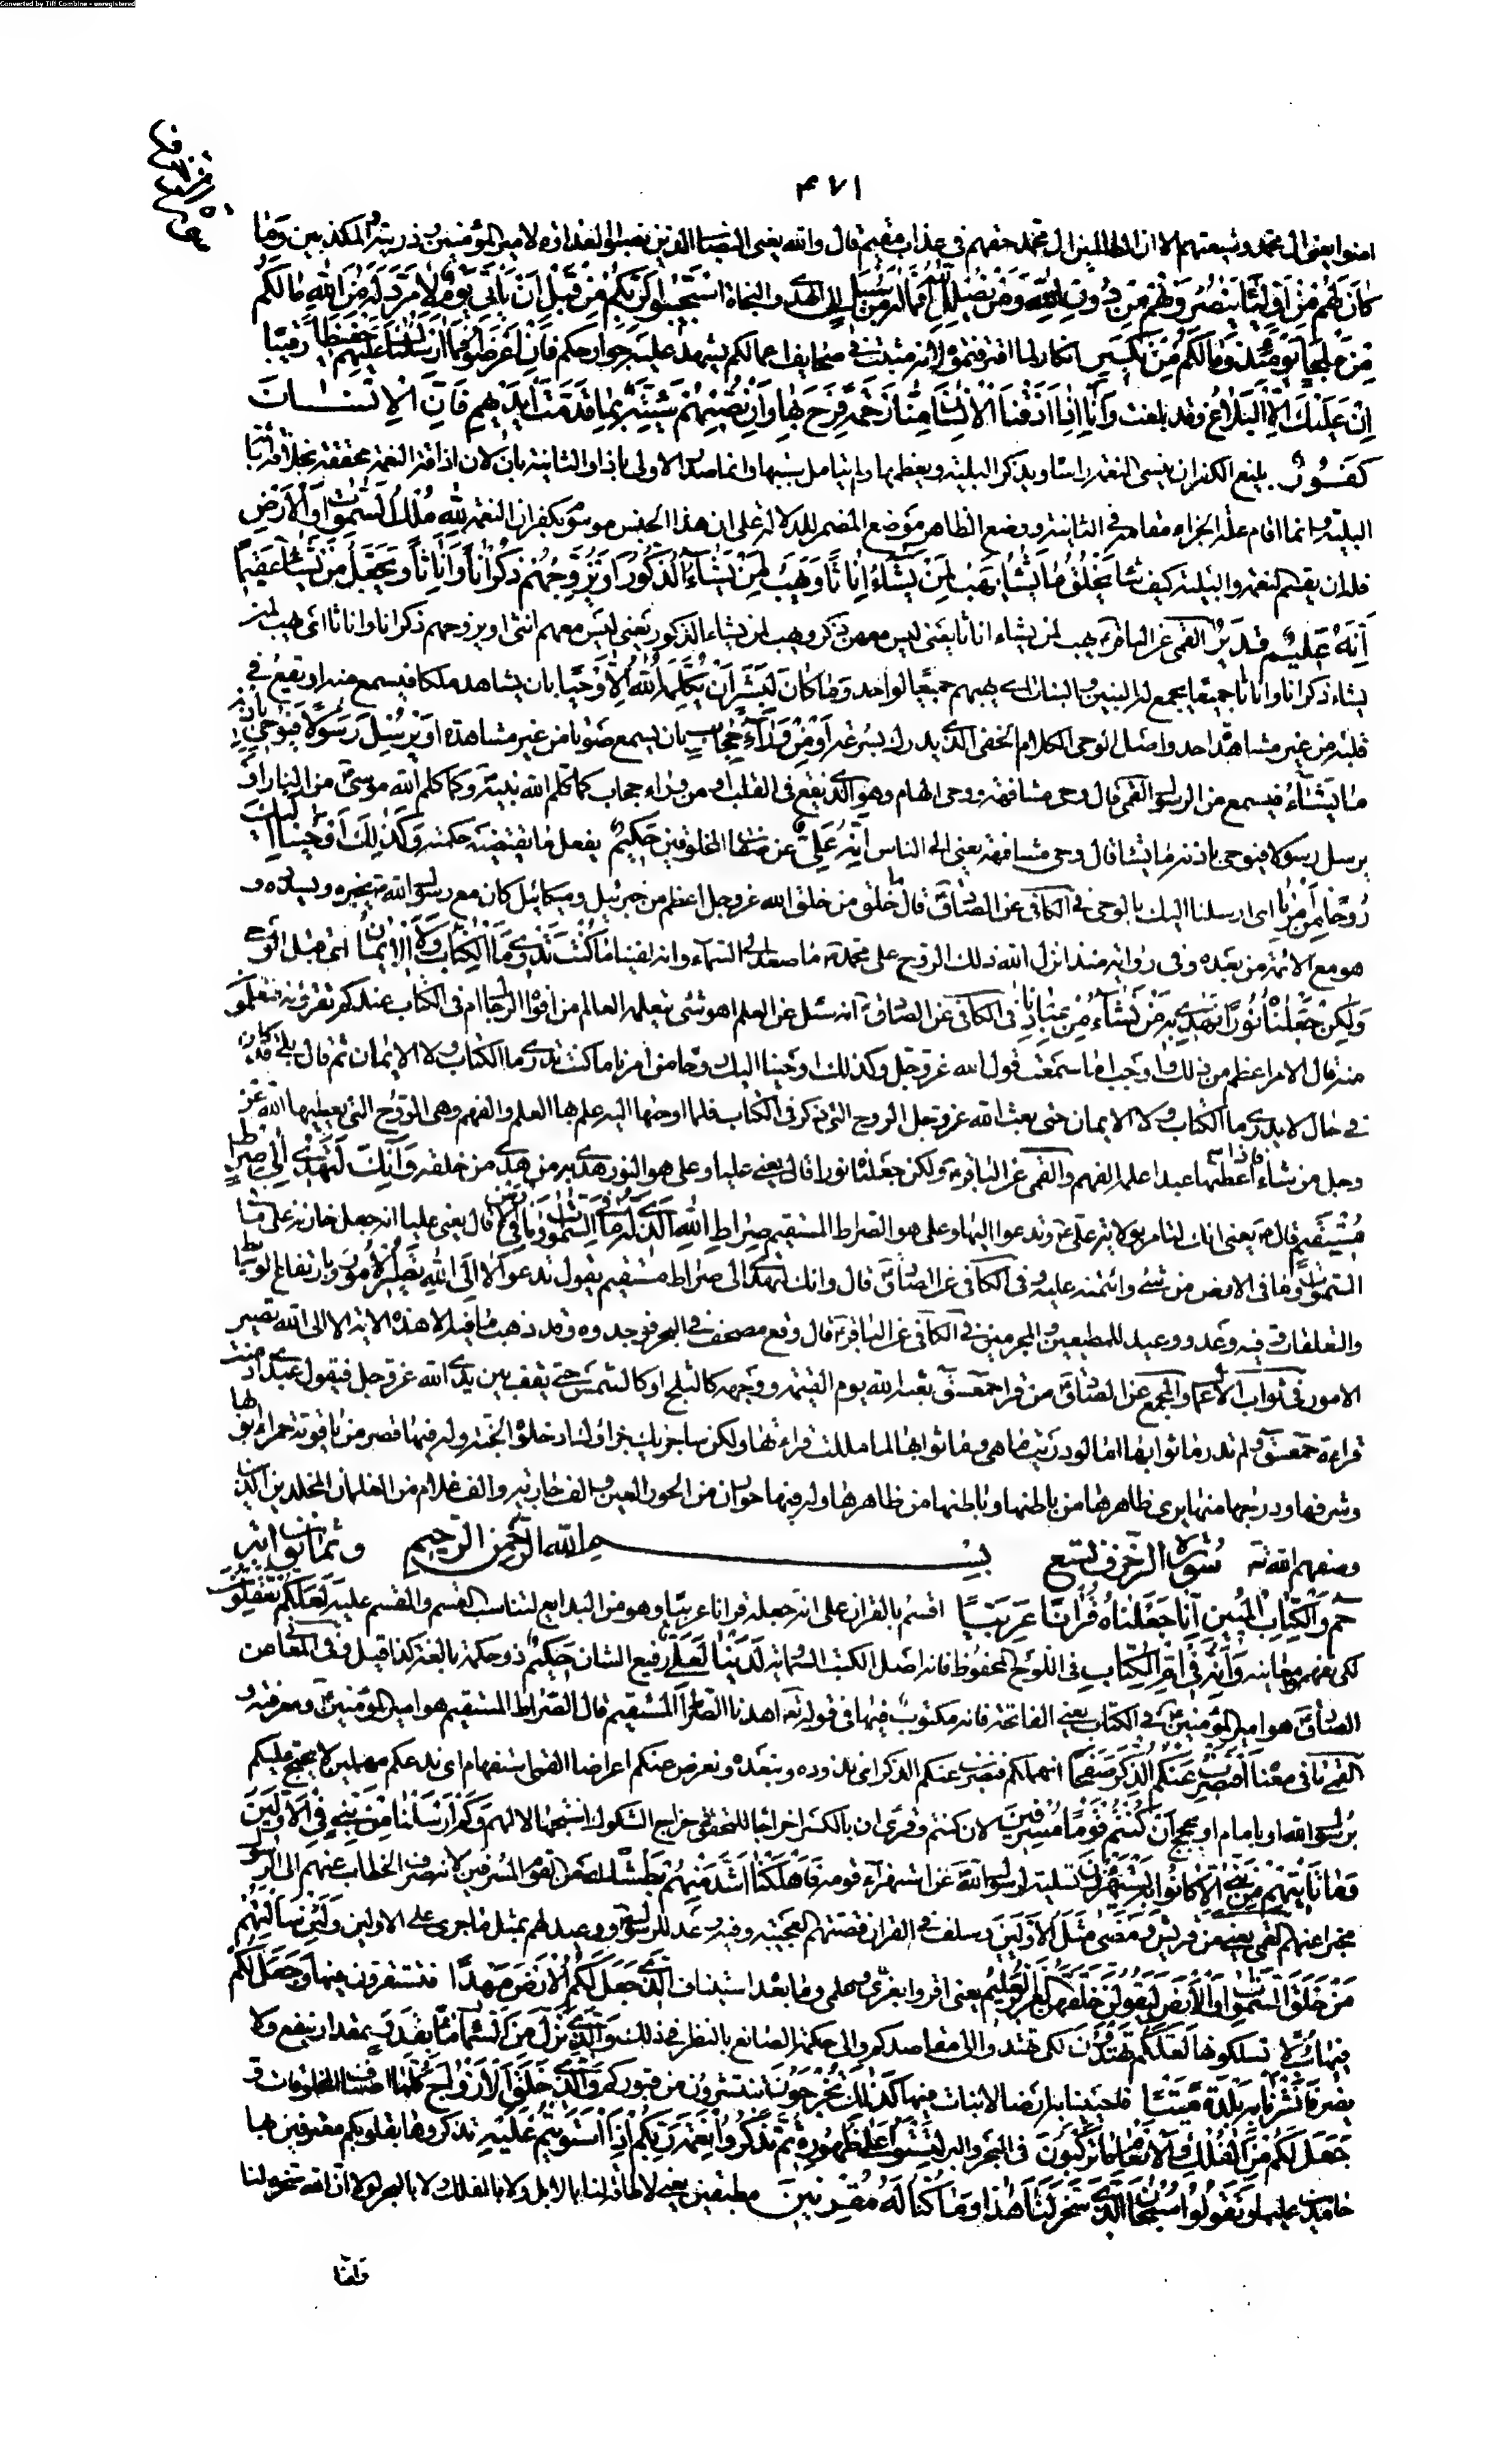 Converted by Tiff Combine - unregistered
٤٧١
امنوا يعنى ال محمد وشيعتهم الا ان الظالمين ال محمد حقهم فى عذاب مقيم قال والله يعنى النصاب الذين نصبوا العداوة لامير المؤمنين وذريته المكذبين وما
كان لهم من اولياء ينصرونهم من دون الله ومن يضلل الله فما له من سبيل الى الهدى والنجاة استجيبوا لربكم من قبل ان ياتى يوم لا مرد له من الله ما لكم
من ملجا يومئذ وما لكم من نكير انكار لما اقترفتموه لانه مثبت فى صحايف اعمالكم يشهد عليه جوارحكم فان اعرضوا فما ارسلناك عليهم حفيظا رقيبا
ان عليك الا البلاغ وقد بلغت وانا اذا اذقنا الانسان منا رحمة فرح بها وان تصبهم سيئة بما قدمت ايديهم فان الانسان
كفور بليغ الكفران ينسى النعمة راسا ويذكر البلية ويعظمها ولم يتامل سببها وانما صدر الاولى باذا والثانية بان لان اذاقة النعمة محققة بخلاف اصابة
البلية وانما اقام علة الجزاء مقامه فى الثانية ووضع الظاهر موضع المضمر للدلالة على ان هذا الجنس موسوم بكفران النعمة لله ملك السموات والارض
فله ان يقسم النعمة والبلية كيف شاء يخلق ما يشاء يهب لمن يشاء اناثا ويهب لمن يشاء الذكور او يزوجهم ذكرانا واناثا ويجعل من يشاء عقيما
انه عليم قدير القمى عن الباقر يهب لمن يشاء اناثا يعنى ليس معهن ذكر ويهب لمن يشاء الذكور يعنى ليس معهم انثى او يزوجهم ذكرانا واناثا اى يهب لمن
يشاء ذكرانا واناثا جميعا يجمع له البنين والبنات اى يهبهم جميعا لواحد وما كان لبشر ان يكلمه الله الا وحيا بان يشاهد ملكا فيسمع منه او يقع فى
قلبه من غير مشاهدة احد واصل الوحى الكلام الخفى الذى يدرك بسرعة او من وراء حجاب بان يسمع صوتا من غير مشاهدة او يرسل رسولا فيوحى باذنه
ما يشاء فيسمع من الرسول القمى قال وحى مشافهة ووحى الهام وهو الذى يقع فى القلب او من وراء حجاب كما كلم الله نبيه وكما كلم الله موسى من النار او
يرسل رسولا فيوحى باذنه ما يشاء قال وحى مشافهة يعنى الى الناس انه على عن صفات المخلوقين حكيم يفعل ما يقتضيه حكمته وكذلك اوحينا اليك
روحا من امرنا اى ارسلنا اليك بالوحى فى الكافى عن الصادق قال خلق من خلق الله عز وجل اعظم من جبرئيل وميكائيل كان مع رسول الله يخبره ويسدده و
هو مع الائمة من بعده وفى رواية منذ انزل الله ذلك الروح على محمد ما صعد الى السماء وانه لفينا ما كنت تدرى ما الكتاب ولا الايمان اى قبل الوحى
ولكن جعلناه نورا نهدى به من نشاء من عبادنا فى الكافى عن الصادق انه سئل عن العلم اهو شئ يتعلمه العالم من افواه الرجال ام فى الكتاب عندكم تقرؤنه فتعلمون
منه قال الامر اعظم من ذلك واوجب اما سمعت قول الله عز وجل وكذلك اوحينا اليك روحا من امرنا ما كنت تدرى ما الكتاب ولا الايمان ثم قال بلى قد كان
فى حال لا يدرى ما الكتاب ولا الايمان حتى بعث الله عز وجل الروح التى ذكر فى الكتاب فلما اوحاها اليه علم بها العلم والفهم وهى الروح التى يعطيها الله عز
وجل من شاء فاذا اعطاها عبدا علمه الفهم والقمى عن الباقر ولكن جعلناه نورا قال يعنى عليا وعلى هو النور هدى به من هدى من خلقه وانك لتهدى الى صراط
مستقيم قال يعنى انك لتامر بولاية على وتدعوا اليها وعلى هو الصراط المستقيم صراط الله الذى له ما فى السموات وما فى الارض قال يعنى عليا انه جعل خازنه على ما فى
السموات وما فى الارض من شئ وائتمنه عليه وفى الكافى عن الصادق قال وانك لتهدى الى صراط مستقيم يقول تدعو الا الى الله تصير الامور بارتفاع الوسايط
والتعلقات وفيه وعد ووعيد للمطيعين والمجرمين فى الكافى عن الباقر قال وقع مصحف فى البحر فوجدوه وقد ذهب ما فيه الا هذه الاية الا الى الله تصير
الامور فى ثواب الاعمال والمجمع عن الصادق من قرا حمعسق بعثه الله يوم القيمة ووجهه كالثلج او كالشمس حتى يقف بين يدى الله عز وجل فيقول عبدى ادمنت
قراءة حمعسق ولم تدر ما ثوابها اما لو دريت ما هى وما ثوابها لما مللت قراءتها ولكن ساجزيك جزاءك ادخلوه الجنة وله فيها قصر من ياقوتة حمراء ابوابها
وشرفها ودرجها منها يرى ظاهرها من باطنها وباطنها من ظاهرها وله فيها حوراوان من الحور العين والف جارية والف غلام من الغلمان المخلدين الذين
وصفهم الله تع سورة الزخرف تسع وثمانون اية بسم الله الرحمن الرحيم
حم والكتاب المبين انا جعلناه قرانا عربيا اقسم بالقران على انه جعله قرانا عربيا وهو من البدايع لتناسب القسم والمقسم عليه لعلكم تعقلون
لكى تفهموا معانيه وانه فى ام الكتاب فى اللوح المحفوظ فانه اصل الكتب السماوية لدينا لعلى رفيع الشان حكيم ذو حكمة بالغة كذا قيل وفى المعانى عن
الصادق هو امير المؤمنين فى ام الكتاب يعنى الفاتحة فانه مكتوب فيها فى قوله تع اهدنا الصراط المستقيم قال الصراط المستقيم هو امير المؤمنين ومعرفته و
القمى ما فى معناه افنضرب عنكم الذكر صفحا انهملكم فنضرب عنكم الذكر اى نذوده ونبعده ونعرض عنكم اعراضا القمى استفهام اى ندعكم مهملين لا نحتج عليكم
برسول الله او بامام او بحجج ان كنتم قوما مسرفين لان كنتم وقرى ان بالكسر اخراجا للمحقق مخرج المشكوك استجهالا لهم وكم ارسلنا من نبى فى الاولين
وما ياتيهم من نبى الا كانوا به يستهزؤن تسلية لرسول الله عن استهزاء قومه فاهلكنا اشد منهم بطشا اى من القوم المسرفين لانه صرف الخطاب عنهم الى الرسول
مخبرا عنهم القمى يعنى من قريش ومضى مثل الاولين وسلف فى القران قصتهم العجيبة وفيه وعد للرسول ووعيد لهم بمثل ما جرى على الاولين ولئن سالتهم
من خلق السموات والارض ليقولن خلقهن العزيز العليم يعنى اقروا بعزى وعلمى وما بعده استيناف الذى جعل لكم الارض مهدا فتستقرون فيها وجعل لكم
فيها سبلا تسلكونها لعلكم تهتدون لكى تهتدوا الى مقاصدكم والى حكمة الصانع بالنظر فى ذلك والذى نزل من السماء ماء بقدر بمقدار ينفع ولا
يضر فانشرنا به بلدة ميتا فاحيينا به ارضا لا نبات فيها كذلك تخرجون تنشرون من قبوركم والذى خلق الازواج كلها اصناف المخلوقات و
جعل لكم من الفلك والانعام ما تركبون فى البحر والبر لتستووا على ظهوره ثم تذكروا نعمة ربكم اذا استويتم عليه تذكروها بقلوبكم معترفين بها
حامدين عليها وتقولوا سبحان الذى سخر لنا هذا وما كنا له مقرنين مطيقين يعنى لا طاقة لنا بالابل ولا بالفلك ولا بالبحر لولا ان الله سخر لنا